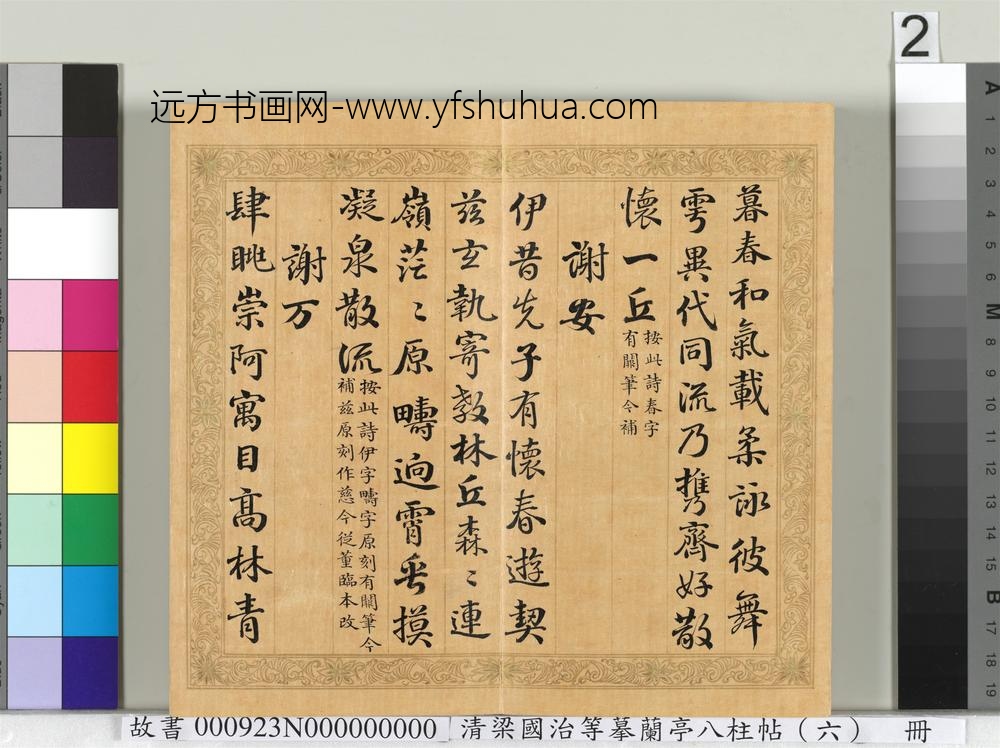 2
远方书画网-www.yfshuhua.com
暮春和氣載柔詠彼舞
雩異代同流乃攜齊好散
懷一丘
按此詩春字
有闕筆今補
謝安
伊昔先子有懷春遊契
茲玄執寄敖林丘森〻連
嶺茫〻原疇迥霄垂摸
凝泉散流
按此詩伊字疇字原刻有闕筆今
補茲原刻作慈今從董臨本改
謝万
肆眺崇阿寓目高林青
故書 000923N000000000 清梁國治等摹蘭亭八柱帖（六） 冊
A 1 2 3 4 5 6 M 8 9 10 11 12 13 14 15 B 17 18 19